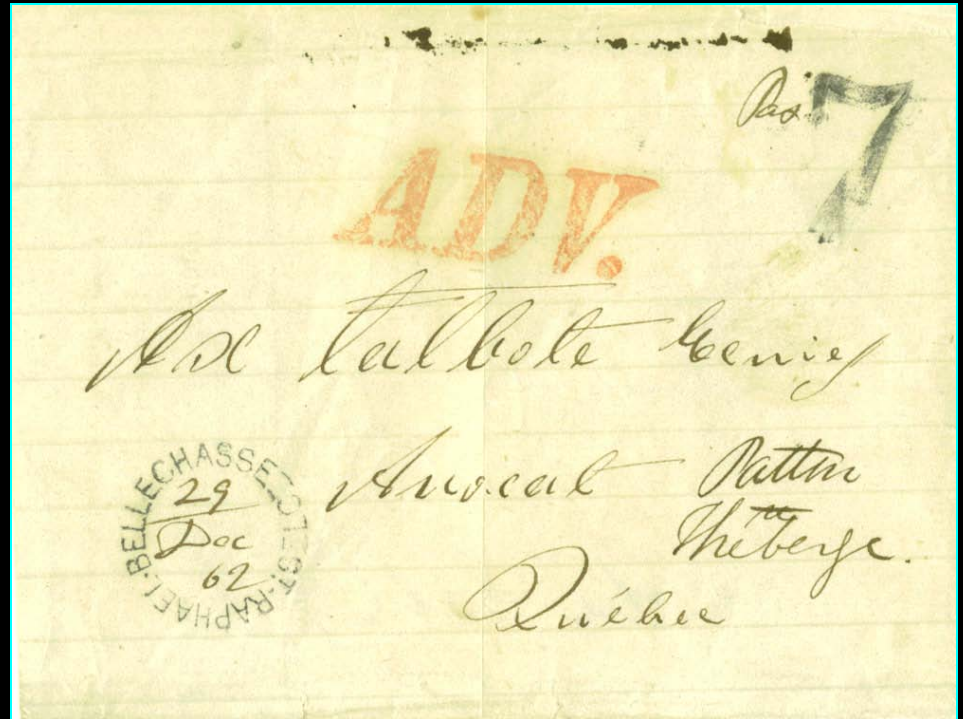 Pas. 7
ADV.
Talbote
Avocat Patton
Théberge.
Québec
ST-RAPHAEL-BELLECHASSE-EST
29
Dec
62